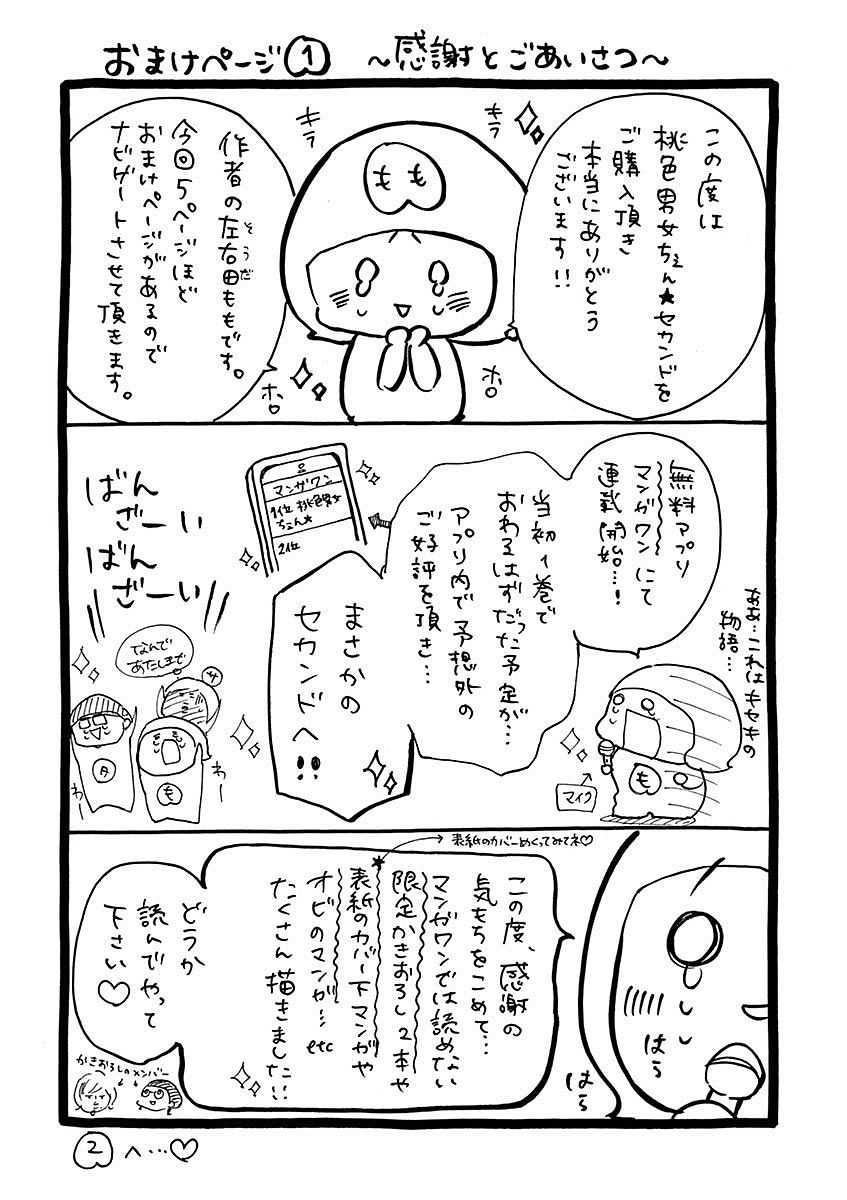 おまけページ① 〜感謝とごあいさつ〜
この度は
桃色男女ちぇん★セカンドを
ご購入頂き
本当にありがとう
ございます!!
キラ
キラ
もも
ホロ
ホロ
作者の左右田ももです。
そうだ
今回5ページほど
おまけページがあるので
ナビゲートさせて頂きます。
ああ…これはキセキの
物語…
無料アプリ
マンガワンにて
連載開始…!
マイク
も
当初1巻で
おわるはずだった予定が…
アプリ内で予想外の
ご好評を頂き…
マンガワン
1位 桃色男女
ちぇん★
2位
まさかの
セカンドへ!!
ばん
ざーい
ばん
ざーい
なんで
あたしまで
サ
タ
も
わー
わー
表紙のカバーめくってみてネ♡
この度、感謝の
気もちをこめて…
マンガワンでは読めない
限定かきおろし2本や
表紙のカバー下マンガや
オビのマンガ…etc
たくさん描きました!!
はら
はら
どうか
読んでやって
下さい♡
かきおろしのメンバー
②へ…♡